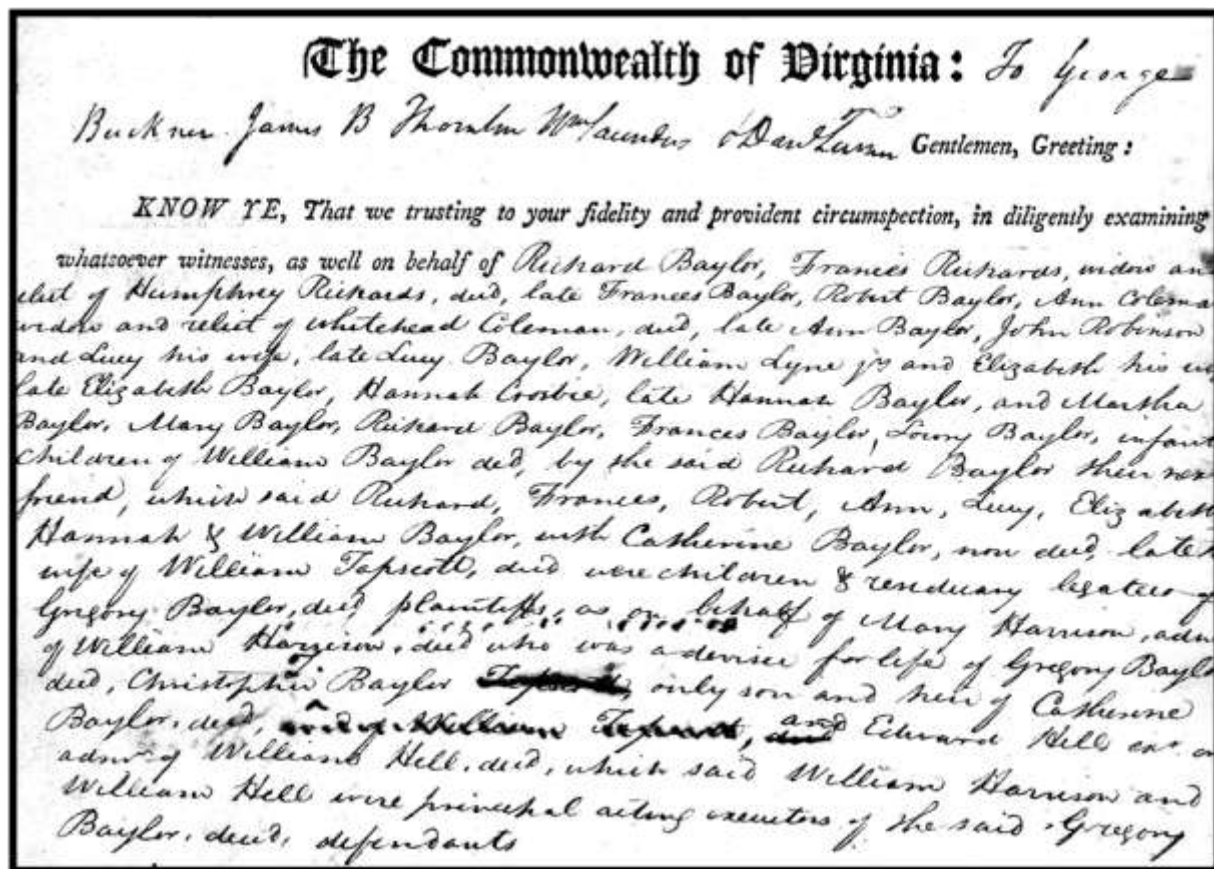 The Commonwealth of Virginia: To George
Buckner James B Thornton Wm Saunders & Danl Turner Gentlemen, Greeting:
KNOW YE, That we trusting to your fidelity and provident circumspection, in diligently examining
whatsoever witnesses, as well on behalf of Richard Baylor, Frances Richards, widow an
relict of Humphrey Richards, decd, late Frances Baylor, Robert Baylor, Ann Colema
widow and relict of Whitehead Coleman, decd, late Ann Baylor, John Robinson
and Lucy his wife, late Lucy Baylor, William Lyne jr and Elizabeth his wi
late Elizabeth Baylor, Hannah Crosbie, late Hannah Baylor, and Martha
Baylor, Mary Baylor, Richard Baylor, Frances Baylor, Lowry Baylor, infant
children of William Baylor decd, by the said Richard Baylor their nex
friend, which said Richard, Frances, Robert, Ann, Lucy, Elizabeth
Hannah & William Baylor, with Catherine Baylor, now decd, late
wife of William Tapscott, decd were children & residuary legatees of
Gregory Baylor, decd, plaintiffs, as on behalf of Mary Harrison, adm
of William Harrison, decd who was a devisee for life of Gregory Baylo
decd, Christopher Baylor only son and heir of Catherine
Baylor, decd, and Edward Hill exr o
admr of William Hill, decd, which said William Harrison and
William Hill were principal acting executors of the said Gregory
Baylor, decd, defendants